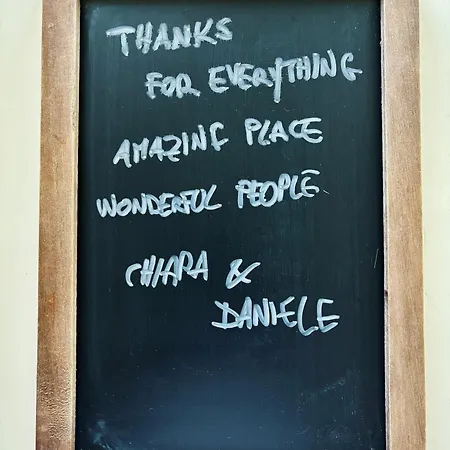 THANKS
FOR EVERYTHING
AMAZING PLACE
WONDERFUL PEOPLE
CHIARA &
DANIELE